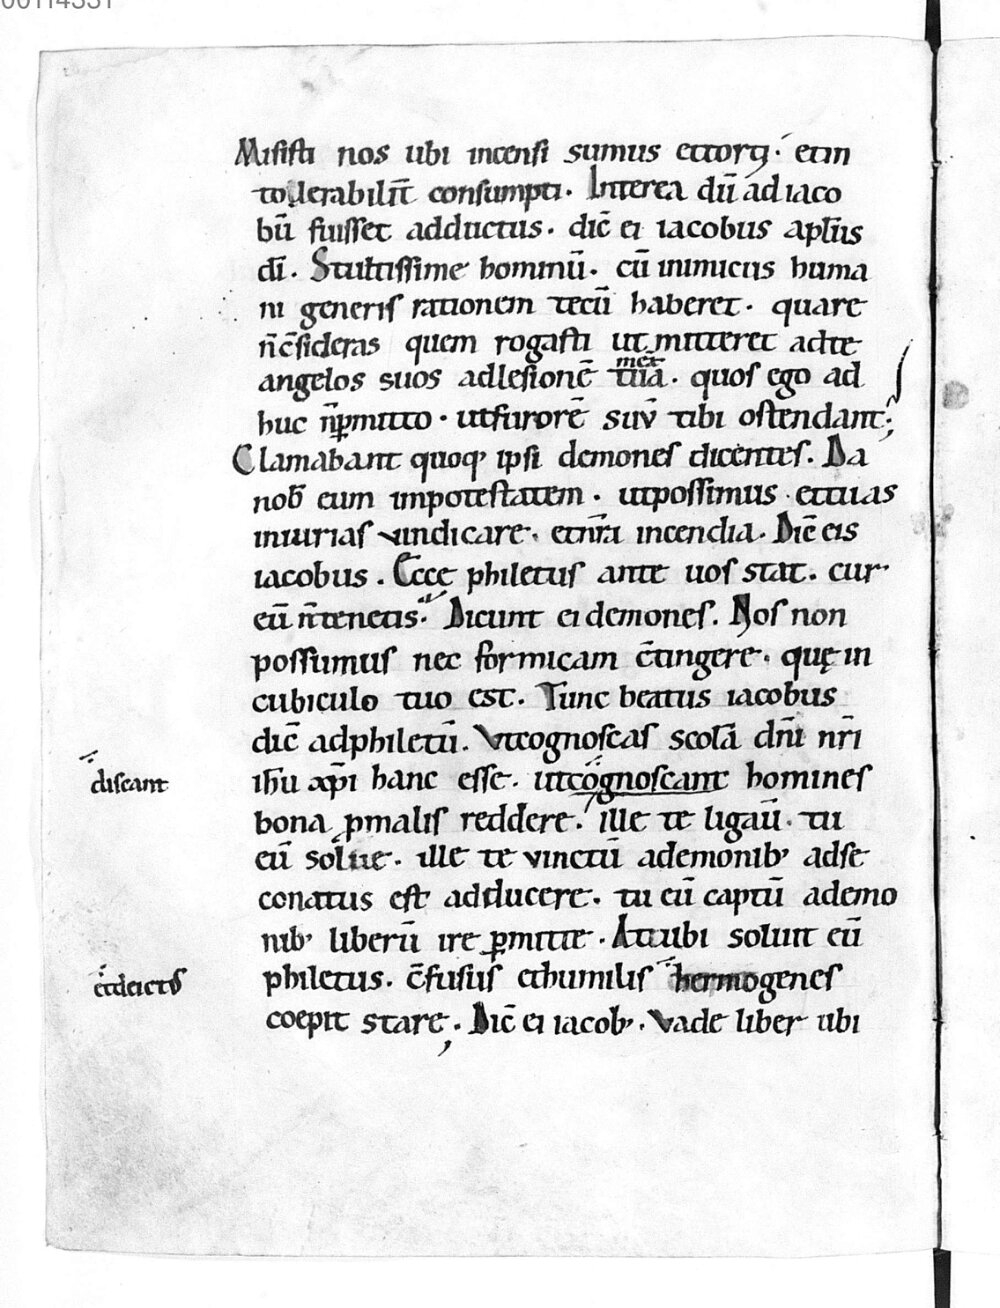 Misisti nos ubi incensi sumus ettorq̄. etin
tollerabilit̄ consumpti. Interea dū ad iaco
bū fuisset adductus. dic̄ ei iacobus apl̄us
dī. Stultissime hominū. cū inimicus huma
ni generis rationem tecū haberet. quare
n̄c̄sideras quem rogasti ut mitteret adte
angelos suos adlesionē meā tuā. quos ego ad
huc n̄ꝑmitto. utfurorē suū tibi ostendant;
Clamabant quoq; ipsi demones dicentes. Da
nob̄ eum impotestatem. utpossimus ettuas
iniurias vindicare. etn̄ra incendia. Dic̄ eis
iacobus. Ecce philetus ante uos stat. cur
eū n̄tenetis. Dicunt ei demones. Nos non
possumus nec formicam c̄tingere. quę in
cubiculo tuo est. Tunc beatus iacobus
dic̄ adphiletū. Vtcognoscas scolā dn̄i nr̄i
discant
ih̄u xp̄i hanc esse. utcognoscant homines
bona ꝓmalis reddere. ille te ligauī. tu
eū solue. ille te vinctū ademonib; adse
conatus est adducere. tu eū captū ademo
nib; liberū ire ꝑmitte. Atubi soluit eū
etdeiectus
philetus. c̄fusus ethumilis hermogenes
coepit stare. Dic̄ ei iacob;. Vade liber ubi